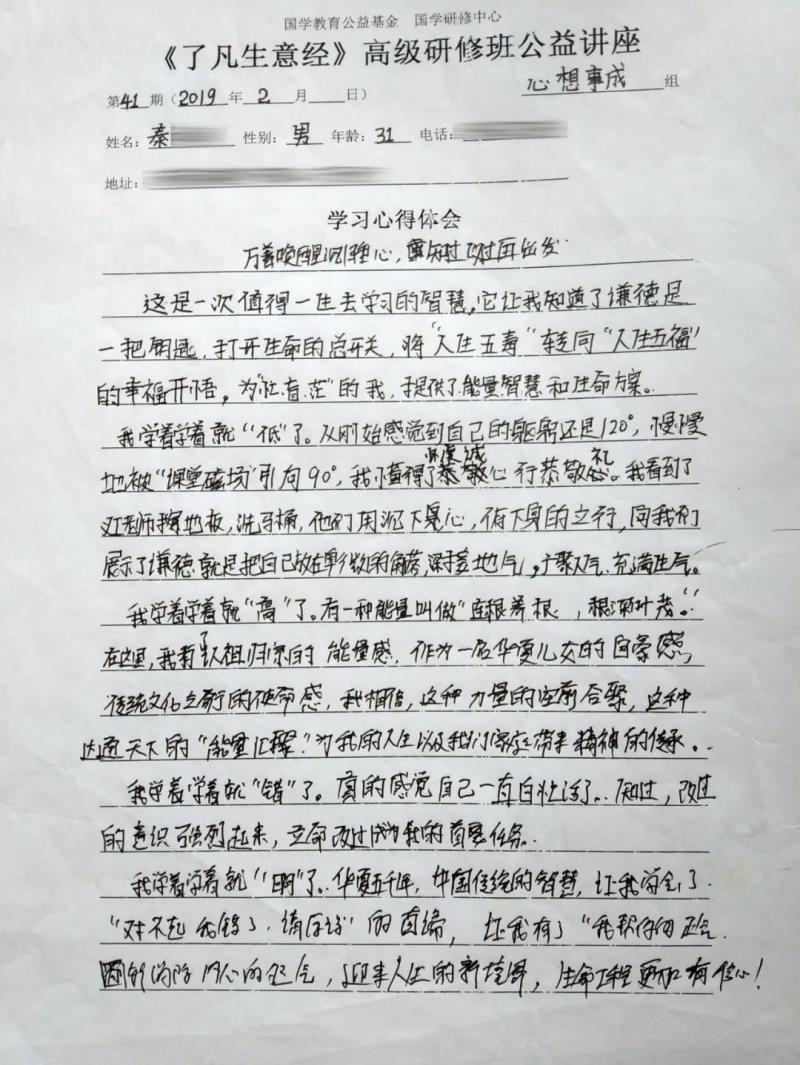 国学教育公益基金 国学研修中心
《了凡生意经》高级研修班公益讲座
第41期（2019年2月 日） 心想事成组
姓名：秦 性别：男 年龄：31 电话：
地址：
学习心得体会
万善唤醒沉睡心，
这是一次值得一生去学习的智慧，它让我知道了谦德是
一把钥匙，打开生命的总开关，将“人生五毒”转向“人生五福”
的幸福开悟，为“忙盲茫”的我，提供了能量智慧和生命方案。
我学着学着就“低”了。从刚始感觉到自己的躯躬还是120°，慢慢
地被“课堂磁场”引向90°，我懂得了怀虔诚恭敬心行恭敬礼。我看到了
老师擦地板，洗马桶，他们用沉下身心，俯下身的力行，向我们
展示了谦德就是把自己放在的角落，接地气，聚人气，充满生气。
我学着学着就“高”了。有一种能量叫做“连根养根，根深叶茂”。
在这里，我有了认祖归宗的能量感，作为一名华夏儿女的自豪感，
传统文化之行的使命感，我相信，这种力量的空前合聚，这种
达通天下的“能量汇聚”为我的人生以及我们家庭带来精神的传承。
我学着学着就“错”了。真的感觉自己一直白忙活了。知过，改过
的意识强烈起来，立命改过成为我的首要任务。
我学着学着就“明”了。华夏五千年，中国传统的智慧，让我学会了
“对不起我错了，请原谅”的真谛，让我有了“我帮你的正念
消除内心的怨气，迎来人生的新境界，生命工程更加有信心！